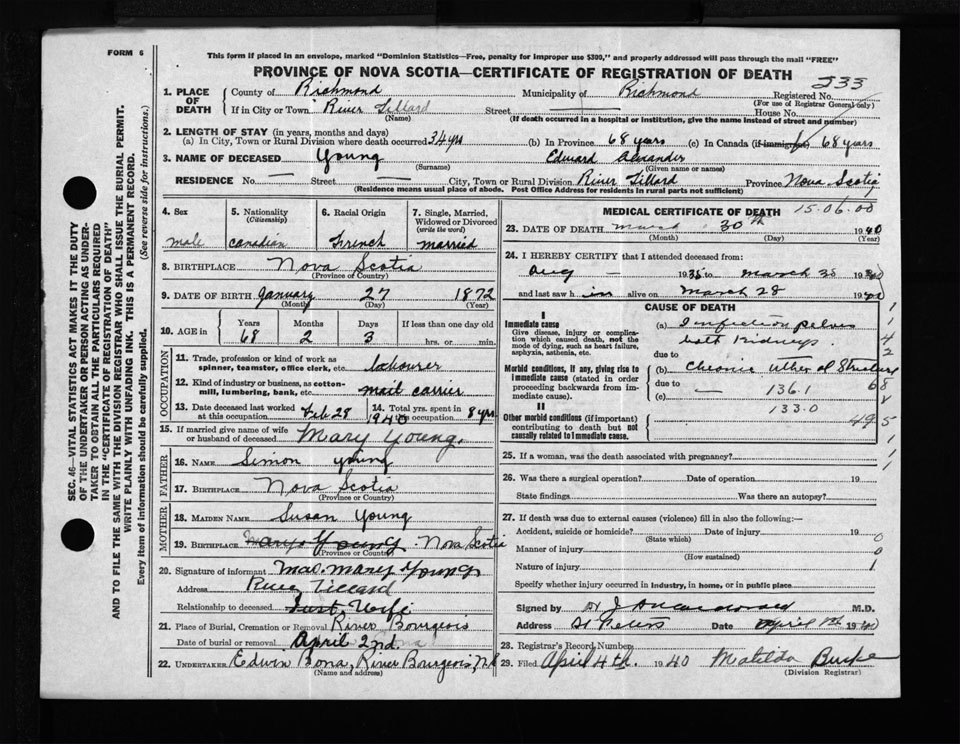 FORM 6
This form if placed in an envelope, marked "Dominion Statistics—Free, penalty for improper use $300," and properly addressed will pass through the mail "FREE"
PROVINCE OF NOVA SCOTIA—CERTIFICATE OF REGISTRATION OF DEATH
233
1. PLACE OF DEATH
County of Richmond Municipality of Richmond Registered No.
(For use of Registrar General only)
If in City or Town River Tillard Street House No.
(Name)
(If death occurred in a hospital or institution, give the name instead of street and number)
2. LENGTH OF STAY (in years, months and days)
(a) In City, Town or Rural Division where death occurred 34 yrs (b) In Province 68 years (c) In Canada (if immigrant) 68 years
3. NAME OF DECEASED Young Edward Alexander
(Surname) (Given name or names)
RESIDENCE No. — Street City, Town or Rural Division River Tillard Province Nova Scotia
(Residence means usual place of abode. Post Office Address for residents in rural parts not sufficient)
4. Sex
male
5. Nationality
(Citizenship)
Canadian
6. Racial Origin
French
7. Single, Married, Widowed or Divorced
(write the word)
married
8. BIRTHPLACE Nova Scotia
(Province or Country)
9. DATE OF BIRTH January 27 1872
(Month) (Day) (Year)
10. AGE in
Years Months Days If less than one day
68 2 3 hrs. or min.
OCCUPATION
11. Trade, profession or kind of work as spinner, teamster, office clerk, etc. Labourer
12. Kind of industry or business, as cotton-mill, lumbering, bank, etc. mail carrier
13. Date deceased last worked at this occupation Feb 28 1940
14. Total yrs. spent in the occupation 8 yrs
15. If married give name of wife or husband of deceased Mary Young.
FATHER
16. NAME Simon Young
17. BIRTHPLACE Nova Scotia
(Province or Country)
MOTHER
18. MAIDEN NAME Susan Young
19. BIRTHPLACE Mary Young Nova Scotia
(Province or Country)
20. Signature of informant Mrs. Mary Young
Address River Tillard
Relationship to deceased Wife
21. Place of Burial, Cremation or Removal River Bourgeois
Date of burial or removal April 2nd
22. UNDERTAKER Edwin Bona, River Bourgeois, N.S
(Name and address)
MEDICAL CERTIFICATE OF DEATH 15.06.00
23. DATE OF DEATH March 30th 1940
(Month) (Day) (Year)
24. I HEREBY CERTIFY that I attended deceased from:
Aug — 1935 to March 1940
and last saw him alive on March 28 1940
CAUSE OF DEATH
I
Immediate cause
Give disease, injury or complication which caused death, not the mode of dying, such as heart failure, asphyxia, asthenia, etc.
(a) Infection pelvis
both Kidneys.
due to
Morbid conditions, if any, giving rise to immediate cause (stated in order proceeding backwards from immediate cause).
(b) Chronic
due to
(c) 136.1
133.0
II
Other morbid conditions (if important) contributing to death but not causally related to immediate cause.
495
25. If a woman, was the death associated with pregnancy?
26. Was there a surgical operation? Date of operation 19
State findings Was there an autopsy?
27. If death was due to external causes (violence) fill in also the following:—
Accident, suicide or homicide? Date of injury 19
(State which)
Manner of injury
(How sustained)
Nature of injury
Specify whether injury occurred in industry, in home, or in public place
Signed by M.D.
Address St Peters Date April 1st 1940
28. Registrar's Record Number
29. Filed April 4th. 1940 Matilda Burke
(Division Registrar)
SEC. 46—VITAL STATISTICS ACT MAKES IT THE DUTY
OF THE UNDERTAKER OR PERSON ACTING AS UNDERTAKER TO OBTAIN ALL THE PARTICULARS REQUIRED
IN THE "CERTIFICATE OF REGISTRATION OF DEATH"
AND TO FILE THE SAME WITH THE DIVISION REGISTRAR WHO SHALL ISSUE THE BURIAL PERMIT.
WRITE PLAINLY WITH UNFADING INK. THIS IS A PERMANENT RECORD.
Every item of information should be carefully supplied. (See reverse side for instructions.)